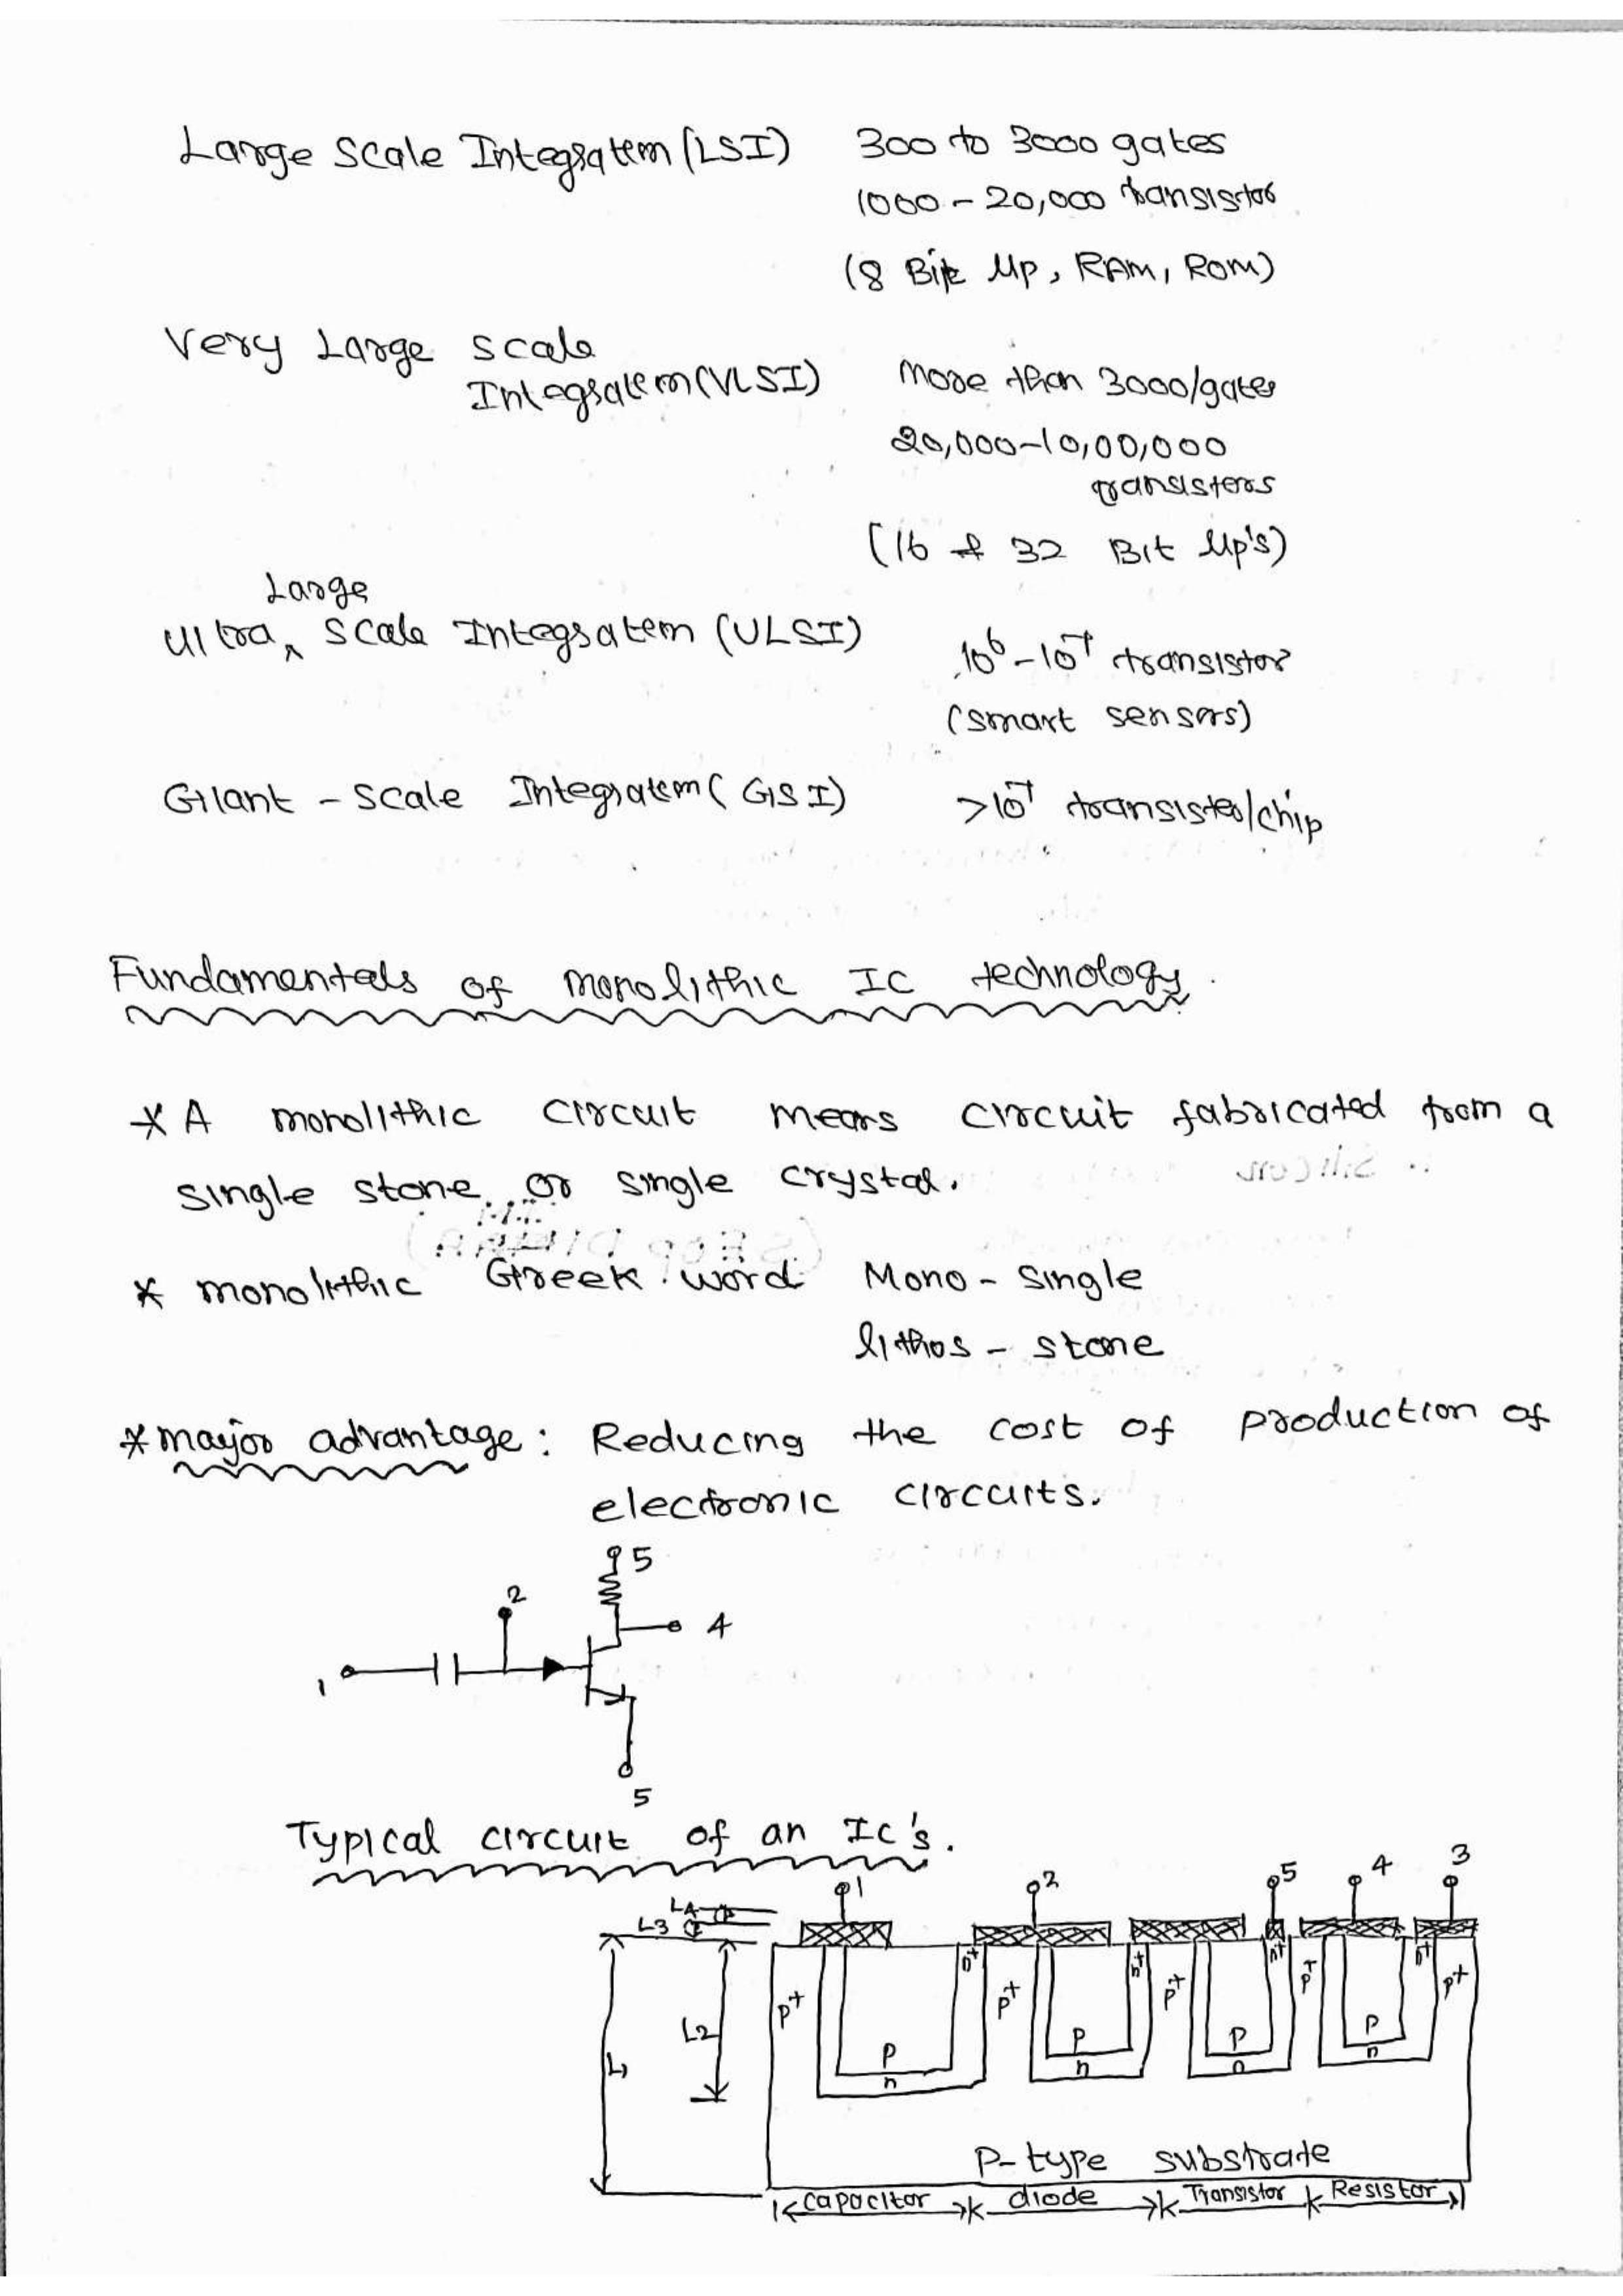 Large Scale Integration (LSI) 300 to 3000 gates
1000 - 20,000 transistor
(8 Bit μp, RAM, ROM)
Very Large Scale
Integration (VLSI) More than 3000/gates
20,000-10,00,000
transistors
(16 & 32 Bit μp's)
Large
Ultra ^ Scale Integration (ULSI)
10⁶ - 10⁷ transistor
(smart sensors)
Giant - Scale Integration (GSI) >10⁷ transistor/chip
Fundamentals of monolithic IC technology.
* A monolithic circuit means circuit fabricated from a
single stone or single crystal.
* monolithic Greek word Mono - single
lithos - stone
* major advantage: Reducing the cost of production of
electronic circuits.
5
2
4
1
5
Typical circuit of an IC's.
1 2 5 4 3
L4
L3
n+ n+ n+ n+
p+ p+ p+ p+ p+
L2
L1
p p p p
n n n n
P-type substrate
Capacitor diode Transistor Resistor